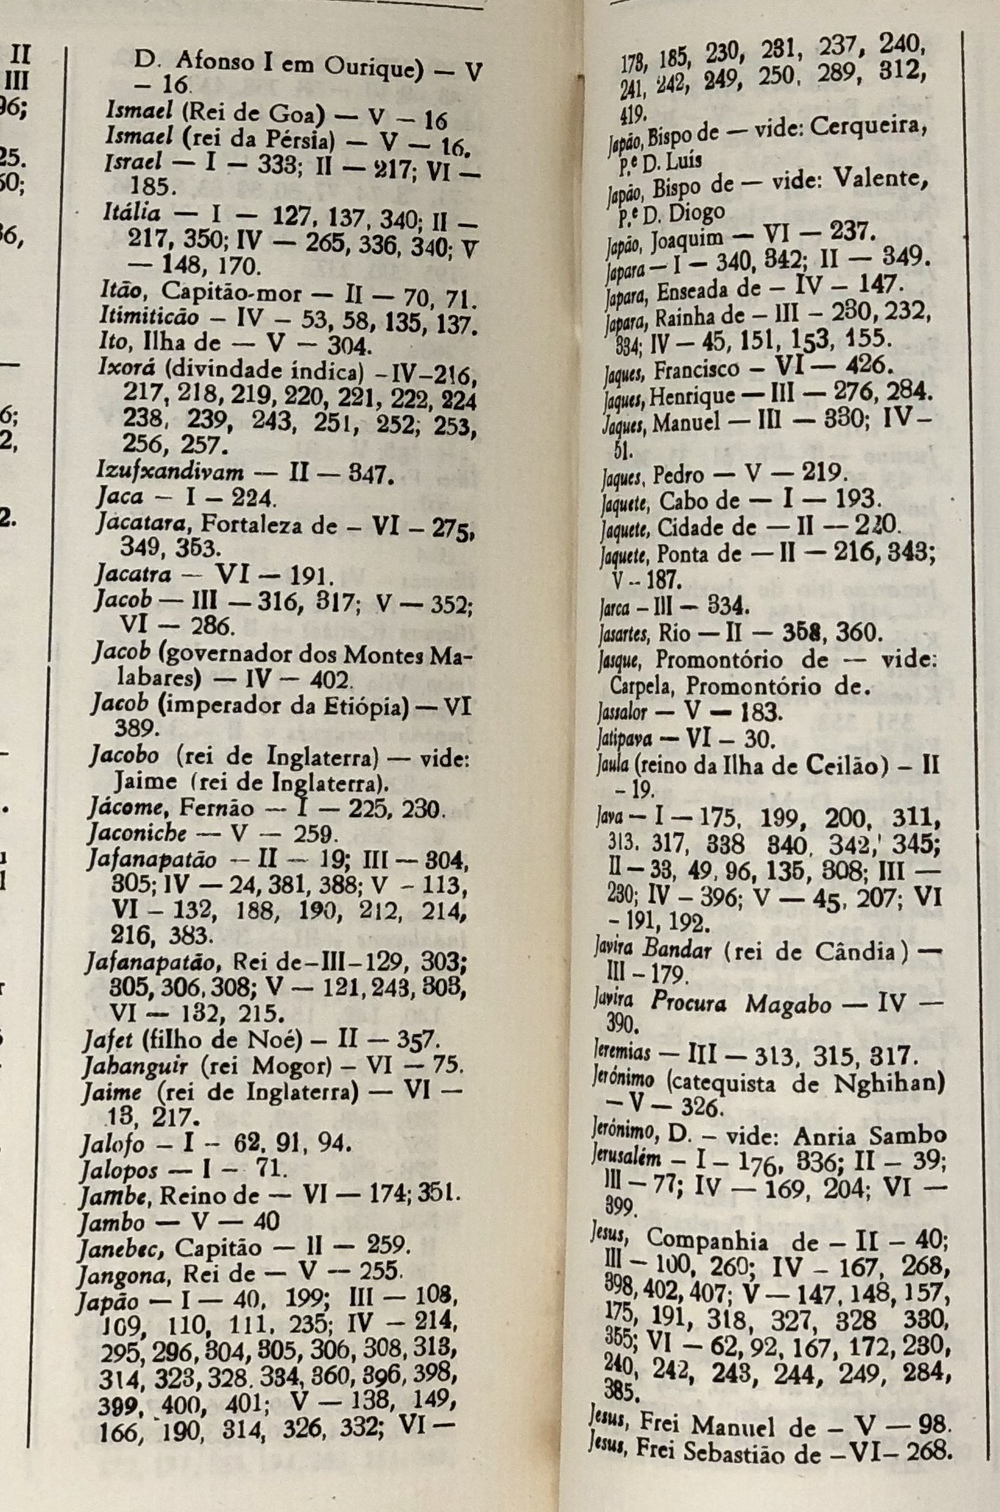 II
III
96;
25.
50;
36,
6;
2,
2.
D. Afonso I em Ourique) — V
— 16.
Ismael (Rei de Goa) — V — 16
Ismael (rei da Pérsia) — V — 16.
Israel — I — 333; II — 217; VI —
185.
Itália — I — 127, 137, 340; II —
217, 350; IV — 265, 336, 340; V
— 148, 170.
Itão, Capitão-mor — II — 70, 71.
Itimiticão — IV — 53, 58, 135, 137.
Ito, Ilha de — V — 304.
Ixorá (divindade índica) —IV—216,
217, 218, 219, 220, 221, 222, 224
238, 239, 243, 251, 252; 253,
256, 257.
Izufxandivam — II — 347.
Jaca — I — 224.
Jacatara, Fortaleza de — VI — 275,
349, 353.
Jacatra — VI — 191.
Jacob — III — 316, 317; V — 352;
VI — 286.
Jacob (governador dos Montes Ma-
labares) — IV — 402.
Jacob (imperador da Etiópia) — VI
389.
Jacobo (rei de Inglaterra) — vide:
Jaime (rei de Inglaterra).
Jácome, Fernão — I — 225, 230.
Jaconiche — V — 259.
Jafanapatão — II — 19; III — 304,
305; IV — 24, 381, 388; V — 113,
VI — 132, 188, 190, 212, 214,
216, 383.
Jafanapatão, Rei de—III—129, 303;
305, 306, 308; V — 121, 243, 303,
VI — 132, 215.
Jafet (filho de Noé) — II — 357.
Jahanguir (rei Mogor) — VI — 75.
Jaime (rei de Inglaterra) — VI —
13, 217.
Jalofo — I — 62, 91, 94.
Jalopos — I — 71.
Jambe, Reino de — VI — 174; 351.
Jambo — V — 40
Janebec, Capitão — II — 259.
Jangona, Rei de — V — 255.
Japão — I — 40, 199; III — 108,
109, 110, 111, 235; IV — 214,
295, 296, 304, 305, 306, 308, 313,
314, 323, 328, 334, 360, 396, 398,
399, 400, 401; V — 138, 149,
166, 190, 314, 326, 332; VI —
173, 185, 230, 231, 237, 240,
241, 242, 249, 250, 289, 312,
419.
Japão, Bispo de — vide: Cerqueira,
P.e D. Luís
Japão, Bispo de — vide: Valente,
P.e D. Diogo
Japão, Joaquim — VI — 237.
Japara — I — 340, 342; II — 349.
Japara, Enseada de — IV — 147.
Japara, Rainha de — III — 230, 232,
334; IV — 45, 151, 153, 155.
Jaques, Francisco — VI — 426.
Jaques, Henrique — III — 276, 284.
Jaques, Manuel — III — 330; IV —
51.
Jaques, Pedro — V — 219.
Jaquete, Cabo de — I — 193.
Jaquete, Cidade de — II — 220.
Jaquete, Ponta de — II — 216, 343;
V — 187.
Jarca — III — 334.
Jasartes, Rio — II — 358, 360.
Jasque, Promontório de — vide:
Carpela, Promontório de.
Jassalor — V — 183.
Jatipava — VI — 30.
Jaula (reino da Ilha de Ceilão) — II
— 19.
Java — I — 175, 199, 200, 311,
313, 317, 338 340, 342, 345;
II — 33, 49, 96, 135, 308; III —
230; IV — 396; V — 45, 207; VI
— 191, 192.
Javira Bandar (rei de Cândia) —
III — 179.
Javira Procura Magabo — IV —
390.
Jeremias — III — 313, 315, 317.
Jerónimo (catequista de Nghihan)
— V — 326.
Jerónimo, D. — vide: Anria Sambo
Jerusalém — I — 176, 336; II — 39;
III — 77; IV — 169, 204; VI —
399.
Jesus, Companhia de — II — 40;
III — 100, 260; IV — 167, 268,
398, 402, 407; V — 147, 148, 157,
175, 191, 318, 327, 328 330,
355; VI — 62, 92, 167, 172, 230,
240, 242, 243, 244, 249, 284,
385.
Jesus, Frei Manuel de — V — 98.
Jesus, Frei Sebastião de —VI— 268.